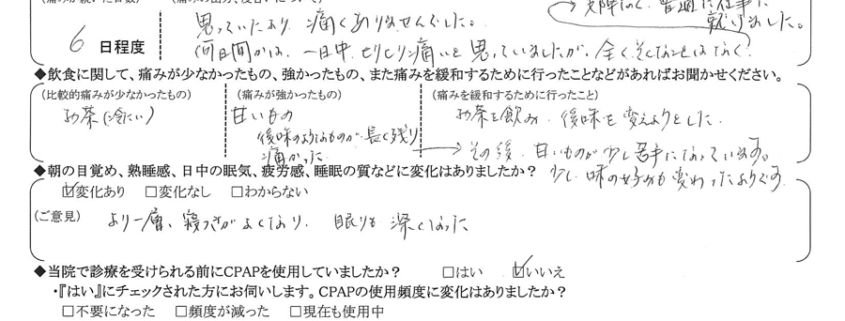 思っていたより 痛くありませんでした。
支障なく、普通に仕事に就けました。
6 日程度
何日間かは、一日中、ヒリヒリ痛いと思っていましたが、全くそんなことはなく
◆飲食に関して、痛みが少なかったもの、強かったもの、また痛みを緩和するために行ったことなどがあればお聞かせください。
(比較的痛みが少なかったもの) (痛みが強かったもの) (痛みを緩和するために行ったこと)
お茶(冷たい) 甘いもの お茶を飲み、後味を変えようとした。
後味のようなものが長く残り
痛かった → その後、甘いものが少し苦手になっています。
◆朝の目覚め、熟睡感、日中の眠気、疲労感、睡眠の質などに変化はありましたか？ 少し味の好みも変わったようです
☑変化あり □変化なし □わからない
(ご意見) より一層、寝つきがよくなり、眠りも深くなった
◆当院で診療を受けられる前にCPAPを使用していましたか？ □はい ☑いいえ
・『はい』にチェックされた方にお伺いします。CPAPの使用頻度に変化はありましたか？
□不要になった □頻度が減った □現在も使用中